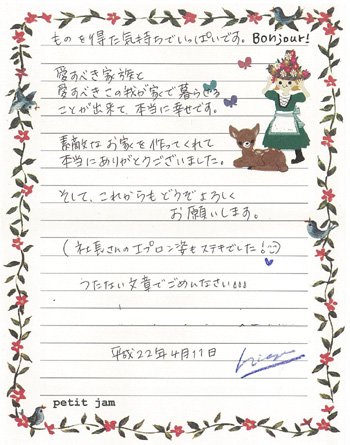 ものを得た気持ちでいっぱいです。 Bonjour!
愛すべき家族と
愛すべきこの我が家で暮らせる
ことが出来て、本当に幸せです。
素敵なお家を作ってくれて
本当にありがとうございました。
そして、これからもどうぞよろしく
お願いします。
(社長さんのエプロン姿もステキでした!
つたない文章でごめんなさい...
平成22年4月11日
petit jam